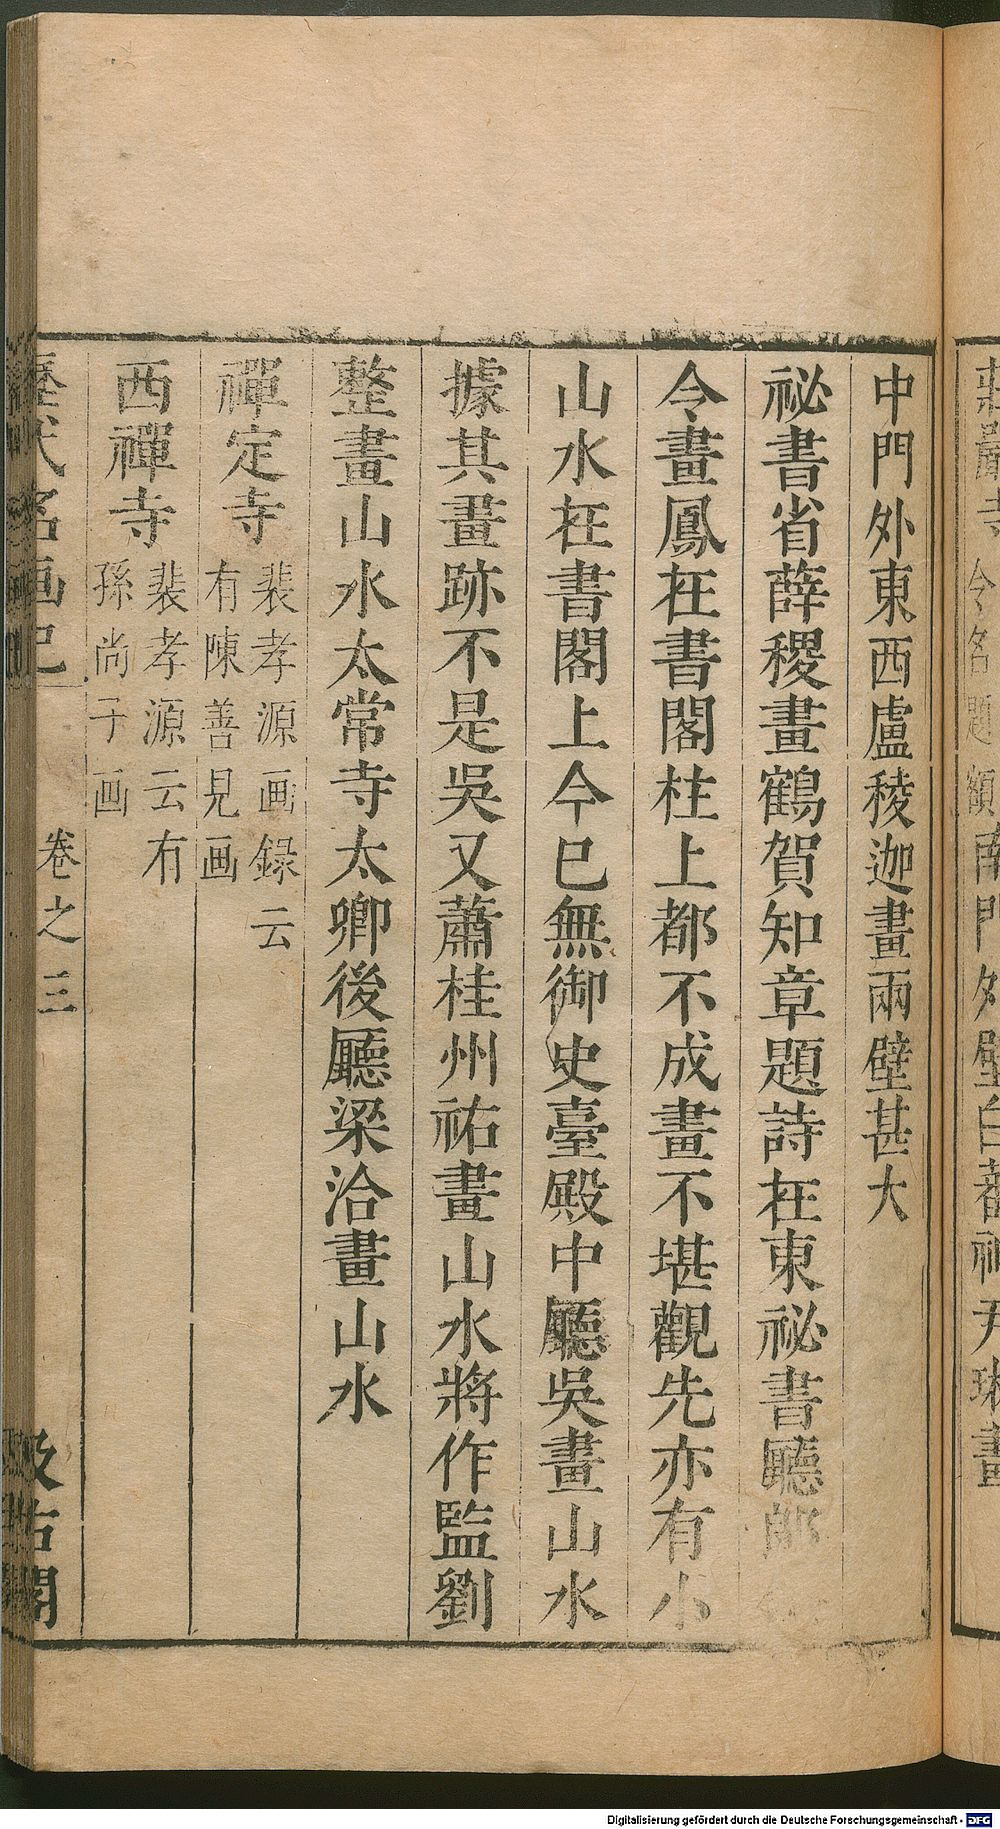 莊嚴寺今名題額南門外壁白蕃神尹琳畫
中門外東西盧稜迦畫兩壁甚大
祕書省薛稷畫鶴賀知章題詩在東祕書廳郎
令畫鳳在書閣柱上都不成畫不堪觀先亦有小
山水在書閣上今已無御史臺殿中廳吳畫山水
據其畫跡不是吳又蕭桂州祐畫山水將作監劉
整畫山水太常寺太卿後廳梁洽畫山水
禪定寺裴孝源画録云
有陳善見画
西禪寺裴孝源云有
孫尚子画
歷代名画記 卷之三 汲古閣
Digitalisierung gefördert durch die Deutsche Forschungsgemeinschaft - DFG